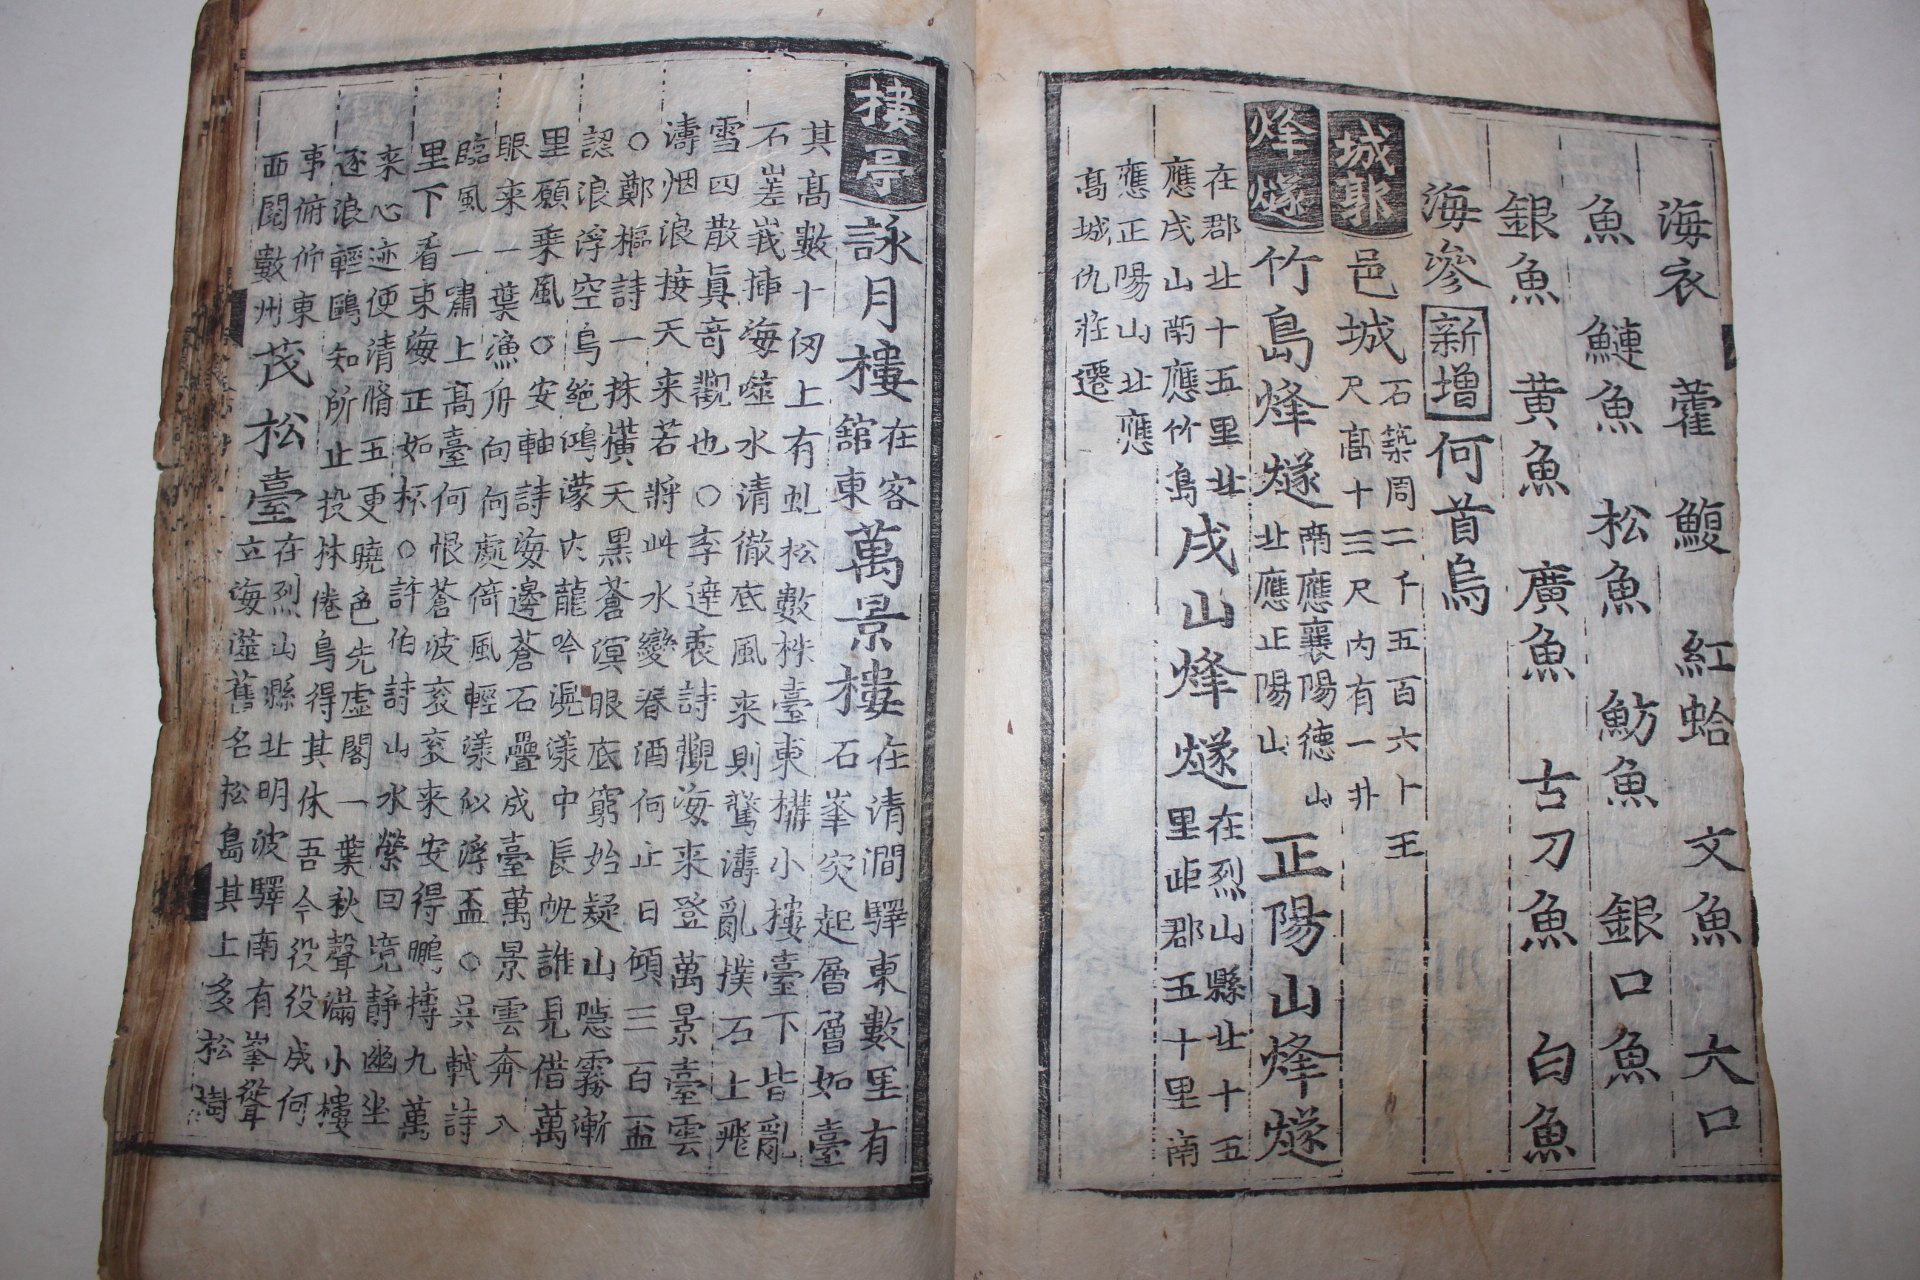 海衣 藿 鰒 紅蛤 文魚 大口
魚 鰱魚 松魚 魴魚 銀口魚
銀魚 黄魚 廣魚 古刀魚 白魚
海參 新增 何首烏
城郭 邑城 石築周二千五百六十
尺高十三尺内有一井
烽燧 竹島烽燧 南應襄陽德山
北應正陽山 正陽山烽燧
在郡北十五里北
應戌山南應竹島 戌山烽燧 在烈山縣北十五
里距郡五十里南
應正陽山北應
高城仇莊遷
樓亭 詠月樓 在客
舘東 萬景樓 在清澗驛東數里有
石峯突起層層如臺
其高數十仞上有虬松數株臺東構小樓臺下皆亂
石嵳峩揷海噬水清徹底風来則驚濤亂撲石上飛
雪四散眞奇觀也○李達衷詩觀海来登萬景臺雲
濤烟浪接天来若將此水變春酒何止日傾三百盃
○鄭樞詩一抹橫天黑蒼溟眼底窮始疑山隱霧漸
認浪浮空鳥絶鴻濛内龍吟滉漾中長帆誰見借萬
里願乗風○安軸詩海邊蒼石疊成臺萬景雲奔入
眼来一葉漁舟向何處倚風輕漾似浮盃○吴軾詩
臨風一嘯上高臺何恨蒼波衮衮来安得鵬摶九萬
里下看東海正如杯○許伯詩山水縈回境静幽坐
来心迹便清脩五更曉色先虚閣一葉秋聲滿小樓
逐浪輕鷗知所止投林倦鳥得其休吾今役役成何
事俯仰東
西閱數州 茂松臺 在烈山縣北明波驛南有峯聳
立海澨舊名松島其上多松樹